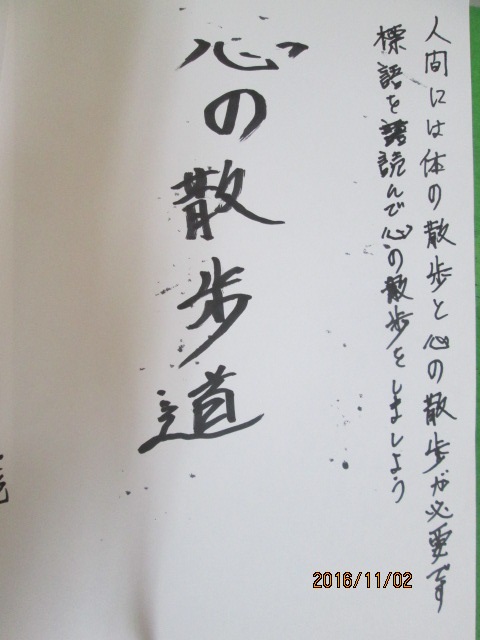 人間には体の散歩と心の散歩が必要です
標語を読んで心の散歩をしましよう
心の散歩道
2016/11/02